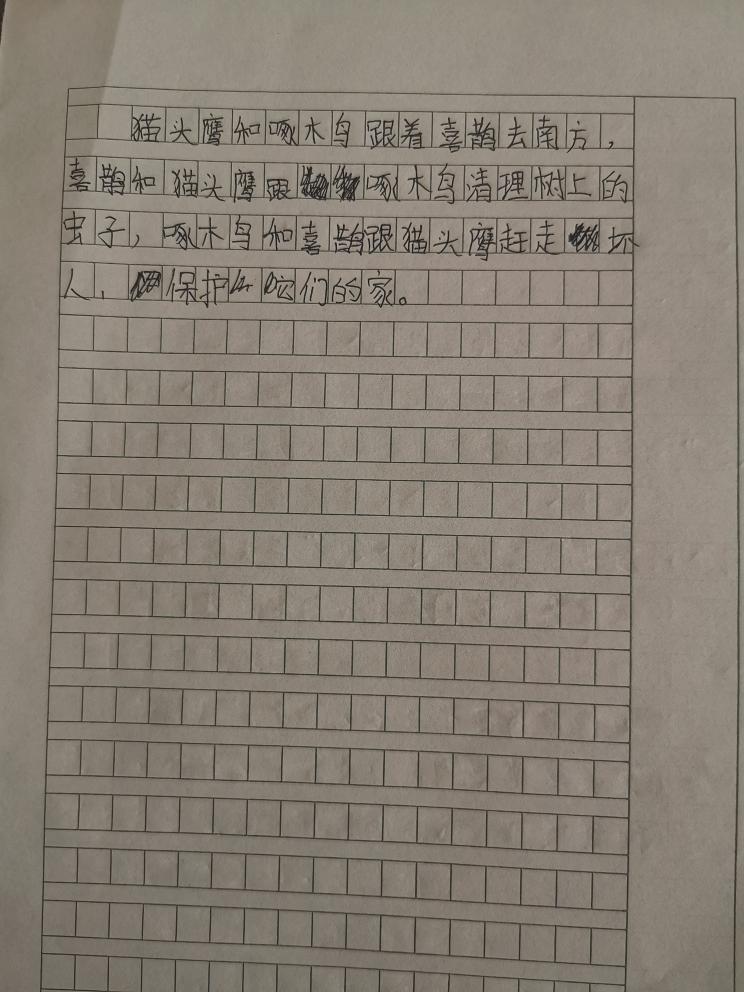 猫头鹰和啄木鸟跟着喜鹊去南方，
喜鹊和猫头鹰跟啄木鸟清理树上的
虫子，啄木鸟和喜鹊跟猫头鹰赶走坏
人，保护它们的家。